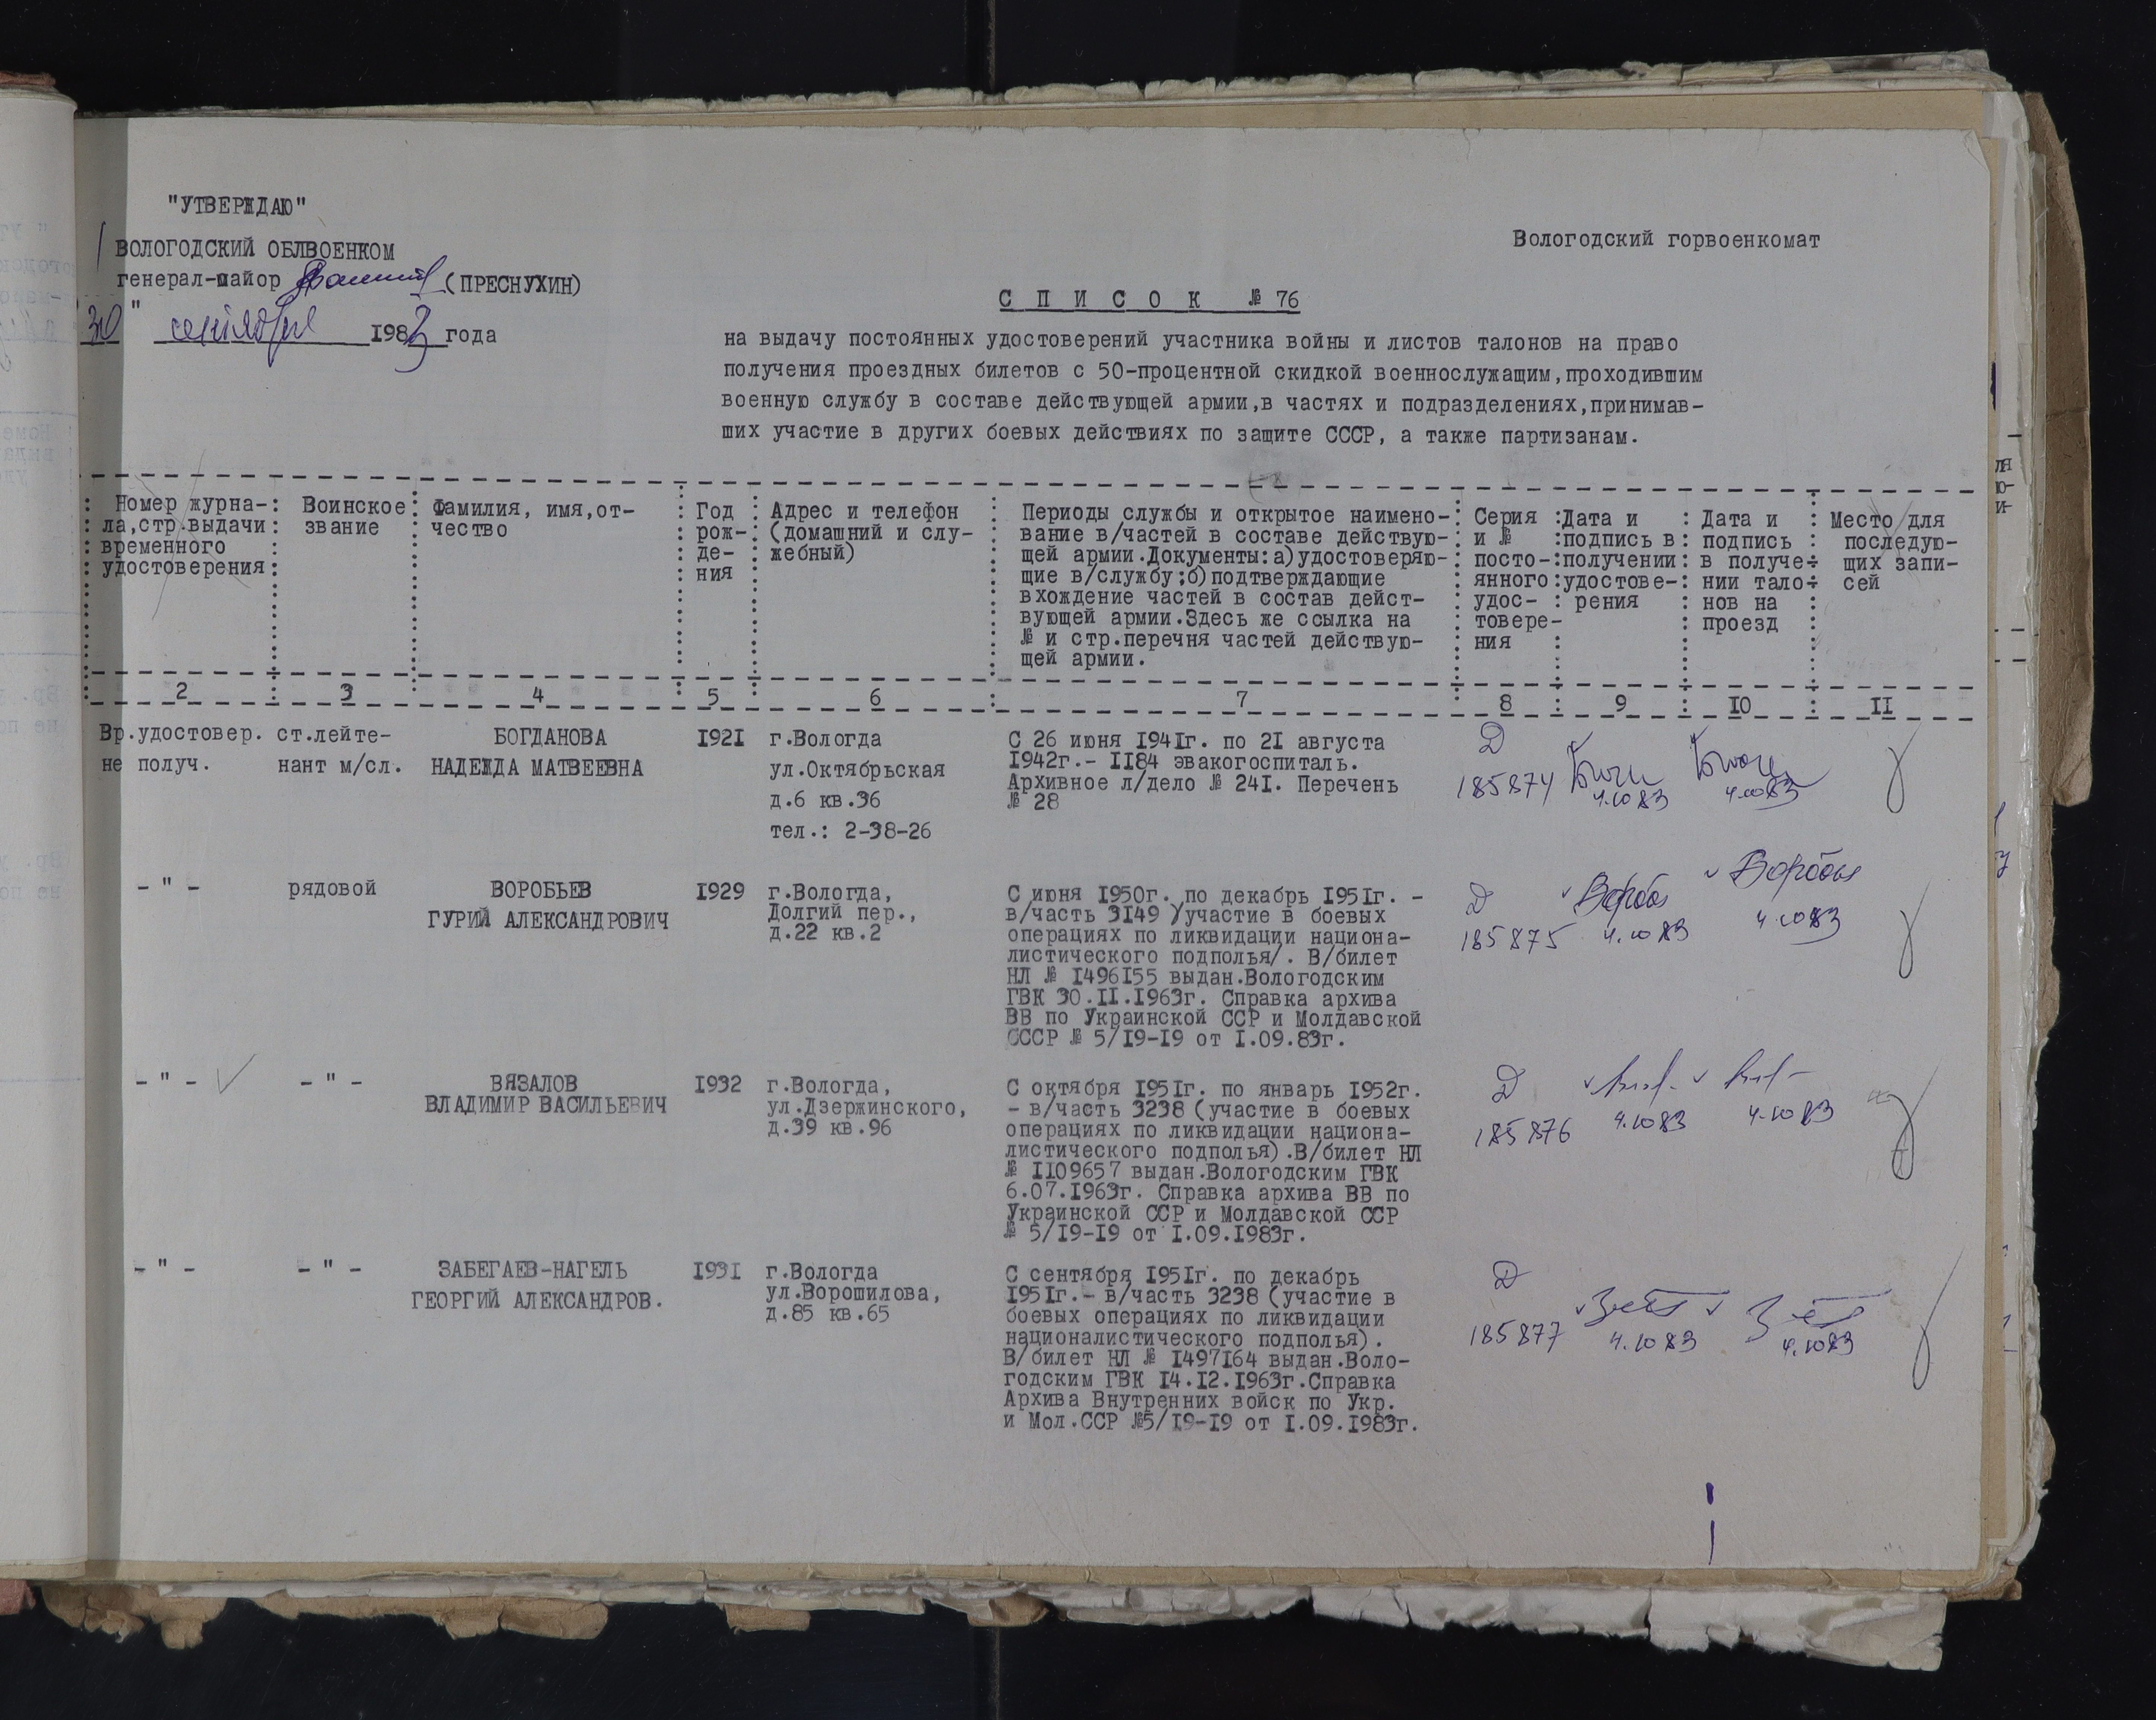 "УТВЕРЖДАЮ"
ВОЛОГОДСКИЙ ОБЛВОЕНКОМ
генерал-майор (ПРЕСНУХИН)
30 " сентября 1983 года
Вологодский горвоенкомат
С П И С О К № 76
на выдачу постоянных удостоверений участника войны и листов талонов на право
получения проездных билетов с 50-процентной скидкой военнослужащим,проходившим
военную службу в составе действующей армии,в частях и подразделениях,принимав-
ших участие в других боевых действиях по защите СССР, а также партизанам.
Номер журна-
ла,стр.выдачи
временного
удостоверения
Воинское
звание
Фамилия, имя,от-
чество
Год
рож-
де-
ния
Адрес и телефон
(домашний и слу-
жебный)
Периоды службы и открытое наимено-
вание в/частей в составе действую-
щей армии.Документы:а)удостоверяю-
щие в/службу;б)подтверждающие
вхождение частей в состав дейст-
вующей армии.Здесь же ссылка на
№ и стр.перечня частей действую-
щей армии.
Серия
и №
посто-
янного
удос-
товере-
ния
Дата и
подпись в
получении
удостове-
рения
Дата и
подпись
в получе-
нии тало-
нов на
проезд
Место для
последую-
щих запи-
сей
2 3 4 5 6 7 8 9 10 11
Вр.удостовер.
не получ.
ст.лейте-
нант м/сл.
БОГДАНОВА
НАДЕЖДА МАТВЕЕВНА
1921
г.Вологда
ул.Октябрьская
д.6 кв.36
тел.: 2-38-26
С 26 июня 1941г. по 21 августа
1942г.- 1184 эвакогоспиталь.
Архивное л/дело № 241. Перечень
№ 28
Д
185874
4.10 83
4.10 83
- " -
рядовой
ВОРОБЬЕВ
ГУРИЙ АЛЕКСАНДРОВИЧ
1929
г.Вологда,
Долгий пер.,
д.22 кв.2
С июня 1950г. по декабрь 1951г. -
в/часть 3149 /участие в боевых
операциях по ликвидации национа-
листического подполья/. В/билет
НЛ № 1496155 выдан.Вологодским
ГВК 30.11.1963г. Справка архива
ВВ по Украинской ССР и Молдавской
СССР № 5/19-19 от 1.09.83г.
Д
185875
4.10 83
4.10 83
- " -
- " -
ВЯЗАЛОВ
ВЛАДИМИР ВАСИЛЬЕВИЧ
1932
г.Вологда,
ул.Дзержинского,
д.39 кв.96
С октября 1951г. по январь 1952г.
- в/часть 3238 (участие в боевых
операциях по ликвидации национа-
листического подполья).В/билет НЛ
№ 1109657 выдан.Вологодским ГВК
6.07.1963г. Справка архива ВВ по
Украинской ССР и Молдавской ССР
№ 5/19-19 от 1.09.1983г.
Д
185876
4.10 83
4.10 83
- " -
- " -
ЗАБЕГАЕВ-НАГЕЛЬ
ГЕОРГИЙ АЛЕКСАНДРОВ.
1931
г.Вологда
ул.Ворошилова,
д.85 кв.65
С сентября 1951г. по декабрь
1951г.- в/часть 3238 (участие в
боевых операциях по ликвидации
националистического подполья).
В/билет НЛ № 1497164 выдан.Воло-
годским ГВК 14.12.1963г.Справка
Архива Внутренних войск по Укр.
и Мол.ССР №5/19-19 от 1.09.1983г.
Д
185877
4.10 83
4.10 83